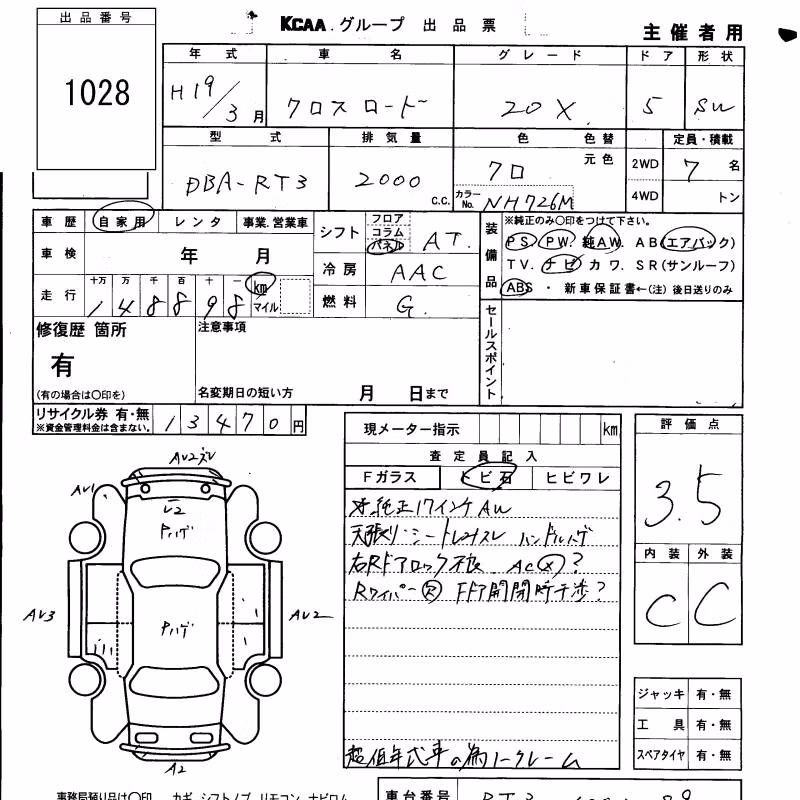 KCAA グループ 出品票
主催者用
出品番号
1028
年式 車名 グレード ドア 形状
H19/3月 クロスロード 20X 5 SW
型式 排気量 色 色替 定員・積載
DBA-RT3 2000 C.C. クロ 元色 2WD 7名
カラーNo. NH726M 4WD トン
車歴 自家用 レンタ 事業.営業車
シフト フロア コラム パネル AT.
車検 年 月
冷房 AAC
走行 十万 万 千 百 十 一
1 4 8 8 9 8 km マイル
燃料 G.
装備品
※純正のみ〇印をつけて下さい。
PS PW. 純AW. AB(エアバック)
TV. ナビ カワ. SR(サンルーフ)
ABS ・ 新車保証書←(注)後日送りのみ
修復歴 箇所
有
(有の場合は〇印を)
注意事項
名変期日の短い方 月 日まで
セールスポイント
リサイクル券 有・無
※資金管理料金は含まない。
13470円
現メーター指示 km
査定員記入
Fガラス トビ石 ヒビワレ
純正17インチAW
天張り・シート ハンドルハゲ
右Rドアロック不良 AC(×)?
Rワイパー R 開閉時干渉?
超低年式車の為ノークレーム
評価点
3.5
内装 外装
C C
AV1
V2
Pハゲ
AV3 Pハゲ AV2
A2
ジャッキ 有・無
工具 有・無
スペアタイヤ 有・無
事務局預り品は〇印 カギ シフトノブ リモコン ナビロム
車台番号 RT3